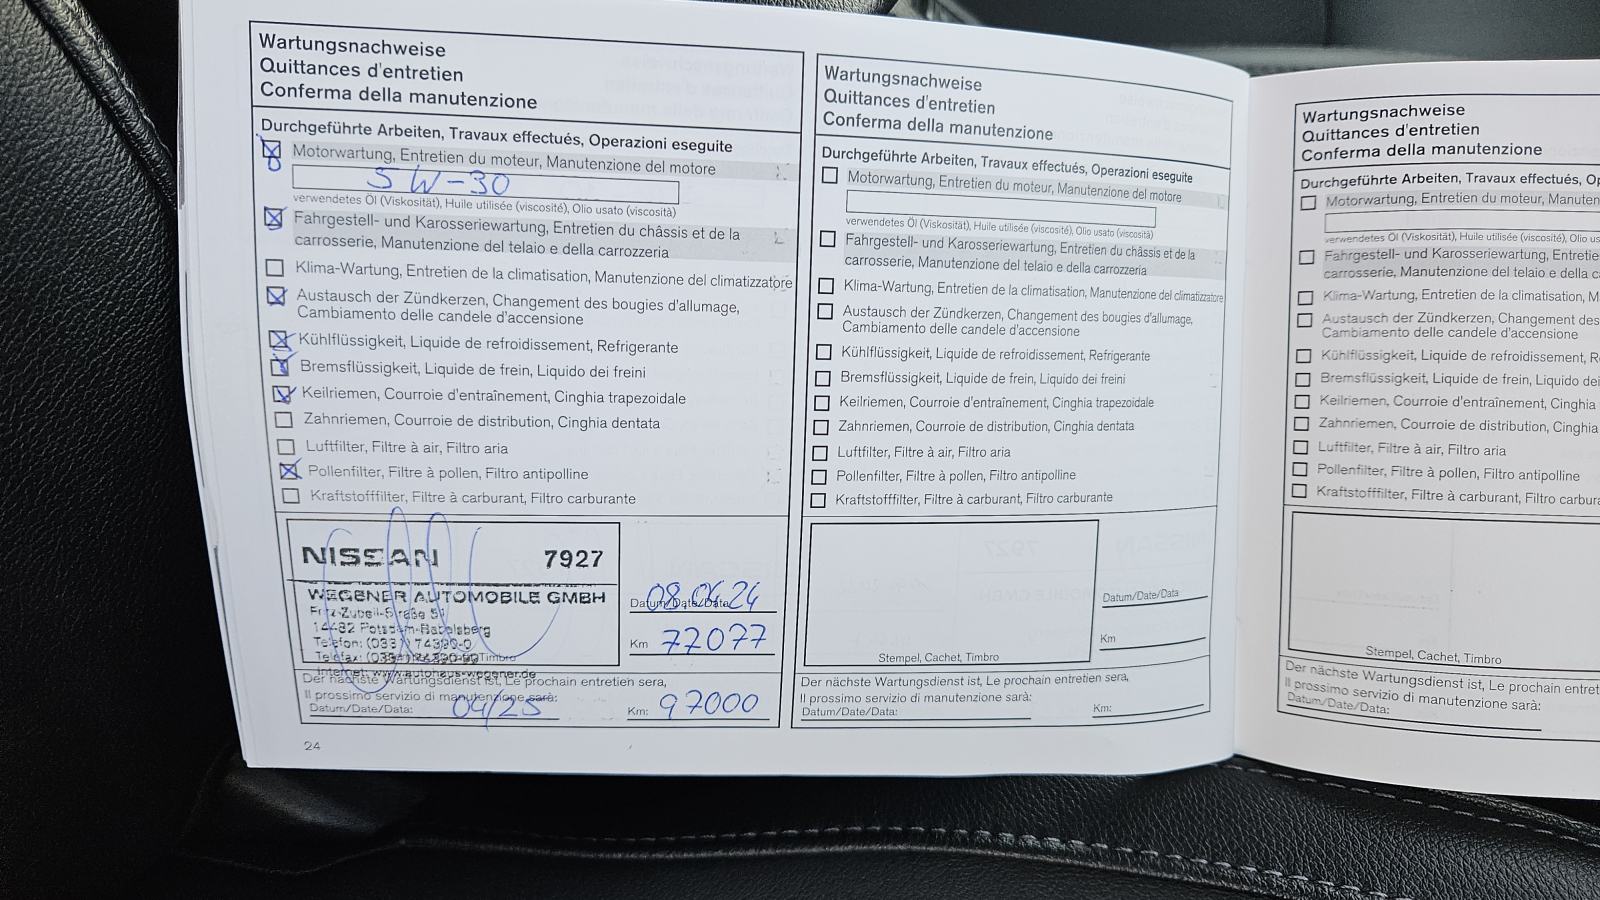 Wartungsnachweise
Quittances d'entretien
Conferma della manutenzione
Durchgeführte Arbeiten, Travaux effectués, Operazioni eseguite
Motorwartung, Entretien du moteur, Manutenzione del motore
5W-30
verwendetes Öl (Viskosität), Huile utilisée (viscosité), Olio usato (viscosità)
Fahrgestell- und Karosseriewartung, Entretien du châssis et de la
carrosserie, Manutenzione del telaio e della carrozzeria
Klima-Wartung, Entretien de la climatisation, Manutenzione del climatizzatore
Austausch der Zündkerzen, Changement des bougies d'allumage,
Cambiamento delle candele d'accensione
Kühlflüssigkeit, Liquide de refroidissement, Refrigerante
Bremsflüssigkeit, Liquide de frein, Liquido dei freini
Keilriemen, Courroie d'entraînement, Cinghia trapezoidale
Zahnriemen, Courroie de distribution, Cinghia dentata
Luftfilter, Filtre à air, Filtro aria
Pollenfilter, Filtre à pollen, Filtro antipolline
Kraftstofffilter, Filtre à carburant, Filtro carburante
NISSAN 7927
WEGENER AUTOMOBILE GMBH
Fritz-Zubeil-Straße 51
14482 Potsdam-Babelsberg
Telefon: (0331) 74390-0
Telefax: (0331) 74390-90 Timbro
Internet: www.autohaus-wegener.de
08.04.24
Datum/Date/Data
Km 77077
Der nächste Wartungsdienst ist, Le prochain entretien sera,
Il prossimo servizio di manutenzione sarà:
Datum/Date/Data: 04/25 Km: 97000
24
Wartungsnachweise
Quittances d'entretien
Conferma della manutenzione
Durchgeführte Arbeiten, Travaux effectués, Operazioni eseguite
Motorwartung, Entretien du moteur, Manutenzione del motore
verwendetes Öl (Viskosität), Huile utilisée (viscosité), Olio usato (viscosità)
Fahrgestell- und Karosseriewartung, Entretien du châssis et de la
carrosserie, Manutenzione del telaio e della carrozzeria
Klima-Wartung, Entretien de la climatisation, Manutenzione del climatizzatore
Austausch der Zündkerzen, Changement des bougies d'allumage,
Cambiamento delle candele d'accensione
Kühlflüssigkeit, Liquide de refroidissement, Refrigerante
Bremsflüssigkeit, Liquide de frein, Liquido dei freini
Keilriemen, Courroie d'entraînement, Cinghia trapezoidale
Zahnriemen, Courroie de distribution, Cinghia dentata
Luftfilter, Filtre à air, Filtro aria
Pollenfilter, Filtre à pollen, Filtro antipolline
Kraftstofffilter, Filtre à carburant, Filtro carburante
Datum/Date/Data
Km
Stempel, Cachet, Timbro
Der nächste Wartungsdienst ist, Le prochain entretien sera,
Il prossimo servizio di manutenzione sarà:
Datum/Date/Data: Km:
Wartungsnachweise
Quittances d'entretien
Conferma della manutenzione
Durchgeführte Arbeiten, Travaux effectués, Op
Motorwartung, Entretien du moteur, Manuten
verwendetes Öl (Viskosität), Huile utilisée (viscosité), Olio us
Fahrgestell- und Karosseriewartung, Entretie
carrosserie, Manutenzione del telaio e della c
Klima-Wartung, Entretien de la climatisation, M
Austausch der Zündkerzen, Changement des
Cambiamento delle candele d'accensione
Kühlflüssigkeit, Liquide de refroidissement, R
Bremsflüssigkeit, Liquide de frein, Liquido dei
Keilriemen, Courroie d'entraînement, Cinghia
Zahnriemen, Courroie de distribution, Cingh
Luftfilter, Filtre à air, Filtro aria
Pollenfilter, Filtre à pollen, Filtro antipolline
Kraftstofffilter, Filtre à carburant, Filtro carbura
Stempel, Cachet, Timbro
Der nächste Wartungsdienst ist, Le prochain entret
Il prossimo servizio di manutenzione sarà:
Datum/Date/Data: